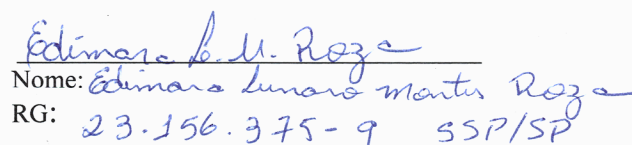 Edimara L. M. Roza
Nome: Edimara Lunaro Montes Roza
RG: 23.156.375-9 SSP/SP